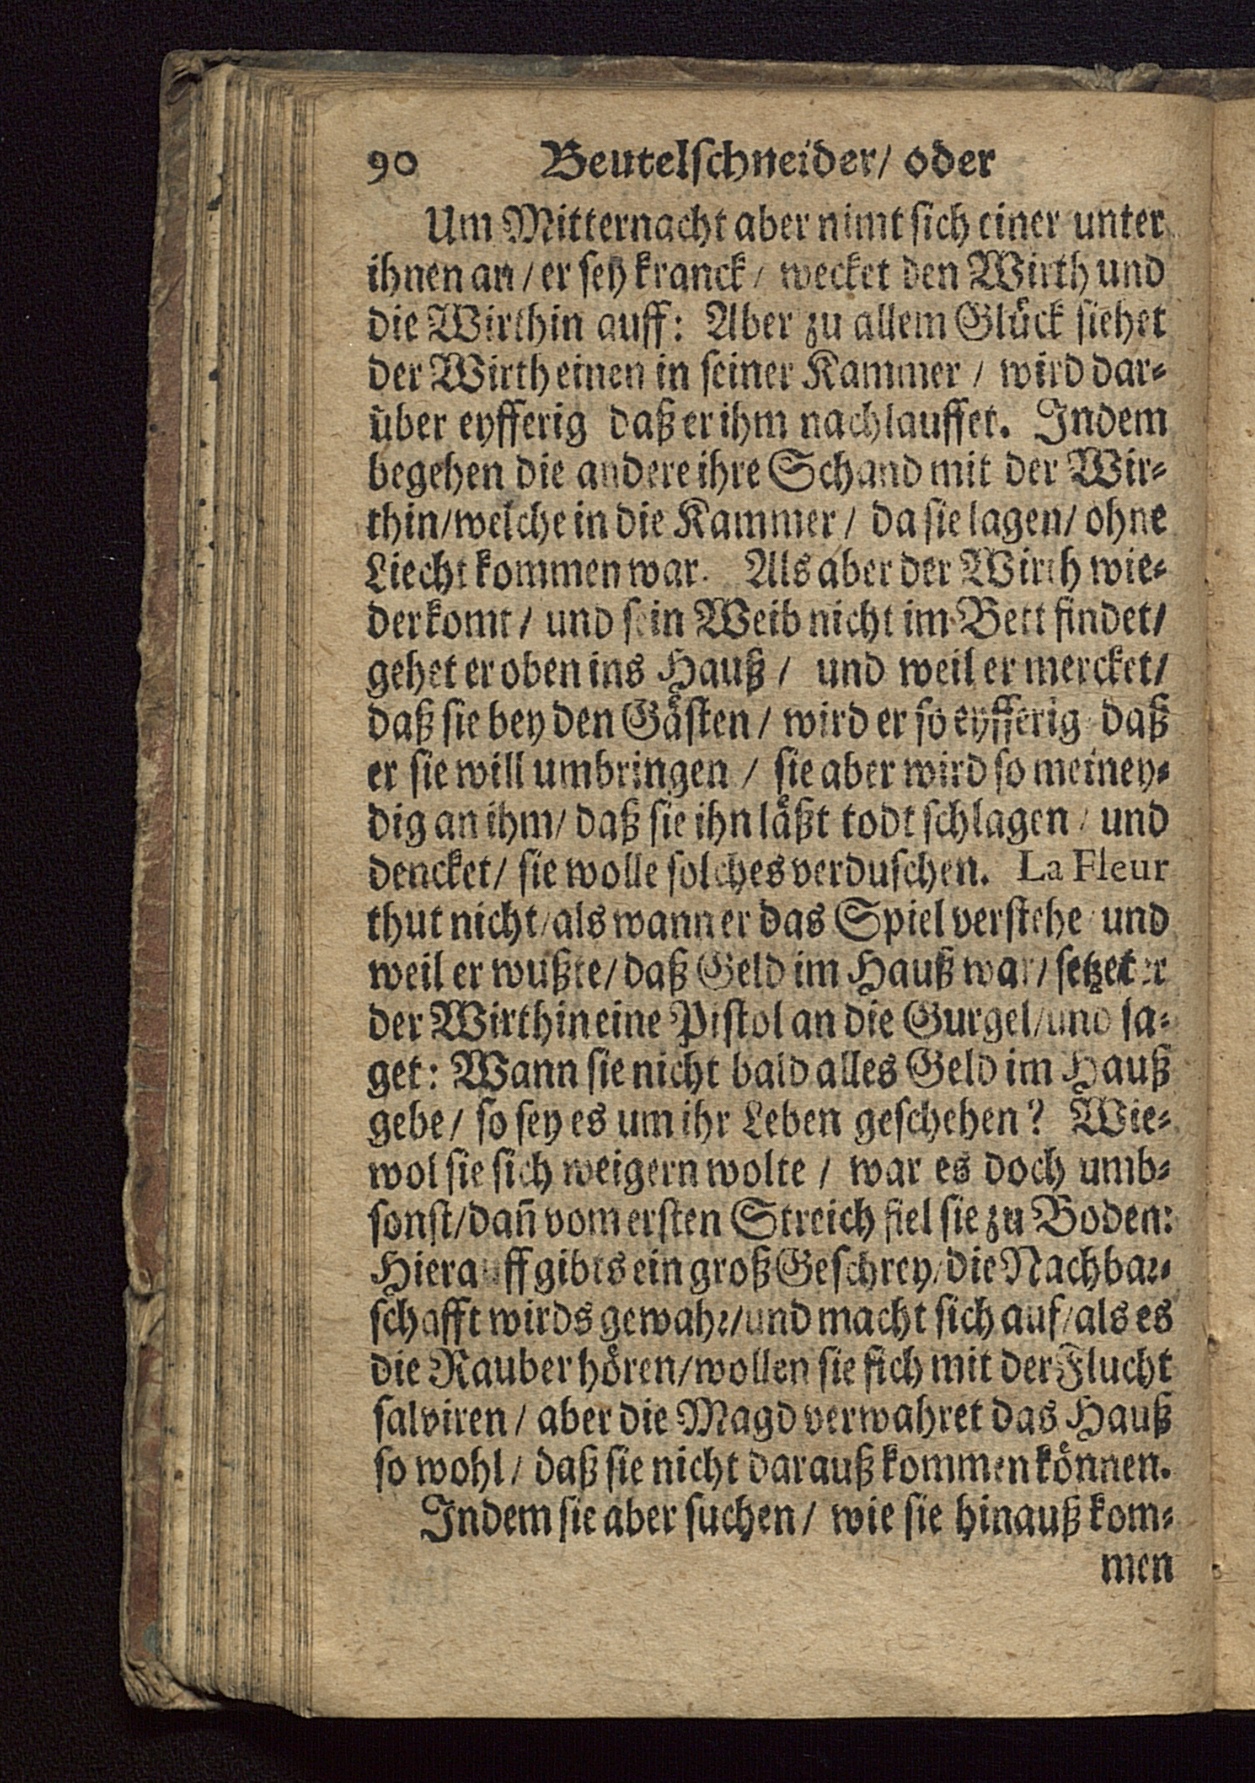 90 Beutelschneider/ oder
Um Mitternacht aber nimt sich einer unter
ihnen an/ er sey kranck/ wecket den Wirth und
die Wirthin auff: Aber zu allem Glück siehet
der Wirth einen in seiner Kammer/ wird dar-
über eyfferig daß er ihm nachlauffet. Indem
begehen die andere ihre Schand mit der Wir-
thin/ welche in die Kammer/ da sie lagen/ ohne
Liecht kommen war. Als aber der Wirth wie-
derkomt/ und sein Weib nicht im Bett findet/
gehet er oben ins Hauß/ und weil er mercket/
daß sie bey den Gästen/ wird er so eyfferig daß
er sie will umbringen/ sie aber wird so meiney-
dig an ihm/ daß sie ihn läßt todt schlagen/ und
dencket/ sie wolle solches verduschen. La Fleur
thut nicht/ als wann er das Spiel verstehe/ und
weil er wußte/ daß Geld im Hauß war/ setzet er
der Wirthin eine Pistol an die Gurgel/ und sa-
get: Wann sie nicht bald alles Geld im Hauß
gebe/ so sey es um ihr Leben geschehen? Wie-
wol sie sich weigern wolte/ war es doch umb-
sonst/ dañ vom ersten Streich fiel sie zu Boden:
Hierauff gibts ein groß Geschrey/ die Nachbar-
schafft wirds gewahr/ und macht sich auf/ als es
die Rauber hören/ wollen sie sich mit der Flucht
salviren/ aber die Magd verwahret das Hauß
so wohl/ daß sie nicht darauß kommen können.
Indem sie aber suchen/ wie sie hinauß kom-
men